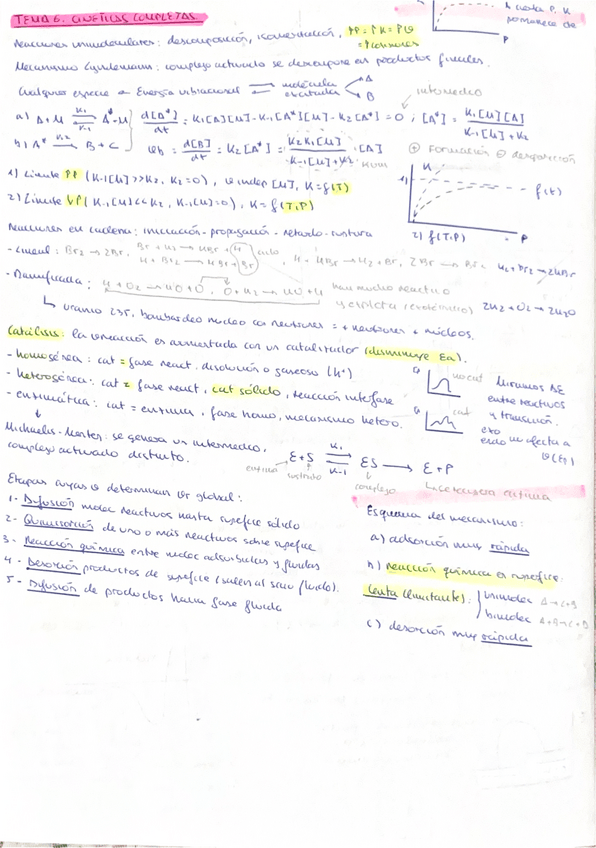 TEMA 6. CINÉTICAS COMPLETAS.
A cierta P, K
permanece cte
P
Reacciones unimoleculares: descomposición, isomerización,
Mecanismo Lindemann: complejo activado se descompone en productos finales.
Cualquier especie Energía vibracional molécula excitada A B
intermedio
a) A+M K1 K-1 A*+M d[A*]/dt = K1[A][M]-K-1[A*][M]-K2[A*] = 0 ; [A*] = K1[M][A] / K-1[M]+K2
b) A* K2 → B+C d[B]/dt = K2[A*] = K2K1[M] / K-1[M]+K2 · [A]
⊕ Formación ⊖ desaparición
1) Límite (K-1[M]>>K2, K2=0), indep [M], K=f(T)
2) Límite (K-1[M]<<K2, K-1[M]=0), K=f(T,P)
K
1)
f(t)
2) f(T,P)
P
Reacciones en cadena: iniciación-propagación-retardo-ruptura
- Lineal: Br2 → 2Br, Br + H2 → HBr + H
H + Br2 → HBr + Br
ciclo
H + HBr → H2 + Br, 2Br → Br2
H2 + Br2 → 2HBr
- Ramificada: H + O2 → HO + O, O + H2 → HO + H
muy reactivo
y explota
2H2 + O2 → 2H2O
↳ uranio 235, bombardeo núcleo con neutrones = + neutrones + núcleos.
Catálisis: la reacción es aumentada con un catalizador (disminuye Ea).
- homogénea: cat = fase react, disolución o gaseoso (H+)
- heterogénea: cat ≠ fase react, cat sólido, reacción interfase
- enzimática: cat = enzima, fase homo, mecanismo hetero.
no cat
cat
Miramos ΔE
entre reactivos
y transición.
no afecta a
Michaelis-Menten: se genera un intermedio,
complejo activado distinto.
E+S K1 K-1 ES → E+P
enzima sustrato complejo
Etapas determinan global:
1- Difusión molec reactivos hasta superficie sólido
2- Quimisorción de uno o más reactivos sobre superficie
3- Reacción química entre molec adsorbidas y fluidas
4- Desorción productos de superficie (salen al seno fluido).
5- Difusión de productos hacia fase fluida
Esquema del mecanismo:
a) adsorción muy rápida
b) reacción química en superficie:
lenta (limitante): unimolec A→C+B
bimolec A+B→C+D
c) desorción muy rápida